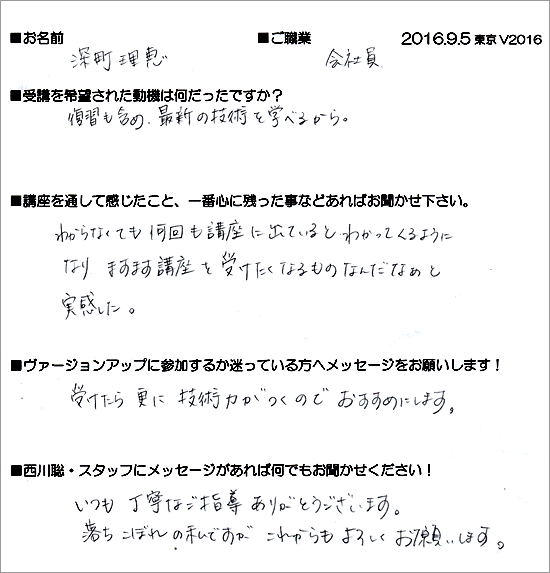 ■お名前
深町理恵
■ご職業
会社員
2016.9.5 東京 V2016
■受講を希望された動機は何だったですか？
復習も含め、最新の技術を学べるから。
■講座を通して感じたこと、一番心に残った事などあればお聞かせ下さい。
わからなくても何回も講座に出ているとわかってくるように
なり ますます講座を受けたくなるものなんだなぁと
実感した。
■ヴァージョンアップに参加するか迷っている方へメッセージをお願いします！
受けたら更に技術力がつくのでおすすめにします。
■西川聡・スタッフにメッセージがあれば何でもお聞かせください！
いつも丁寧なご指導ありがとうございます。
落ちこぼれの私ですがこれからもよろしくお願いします。